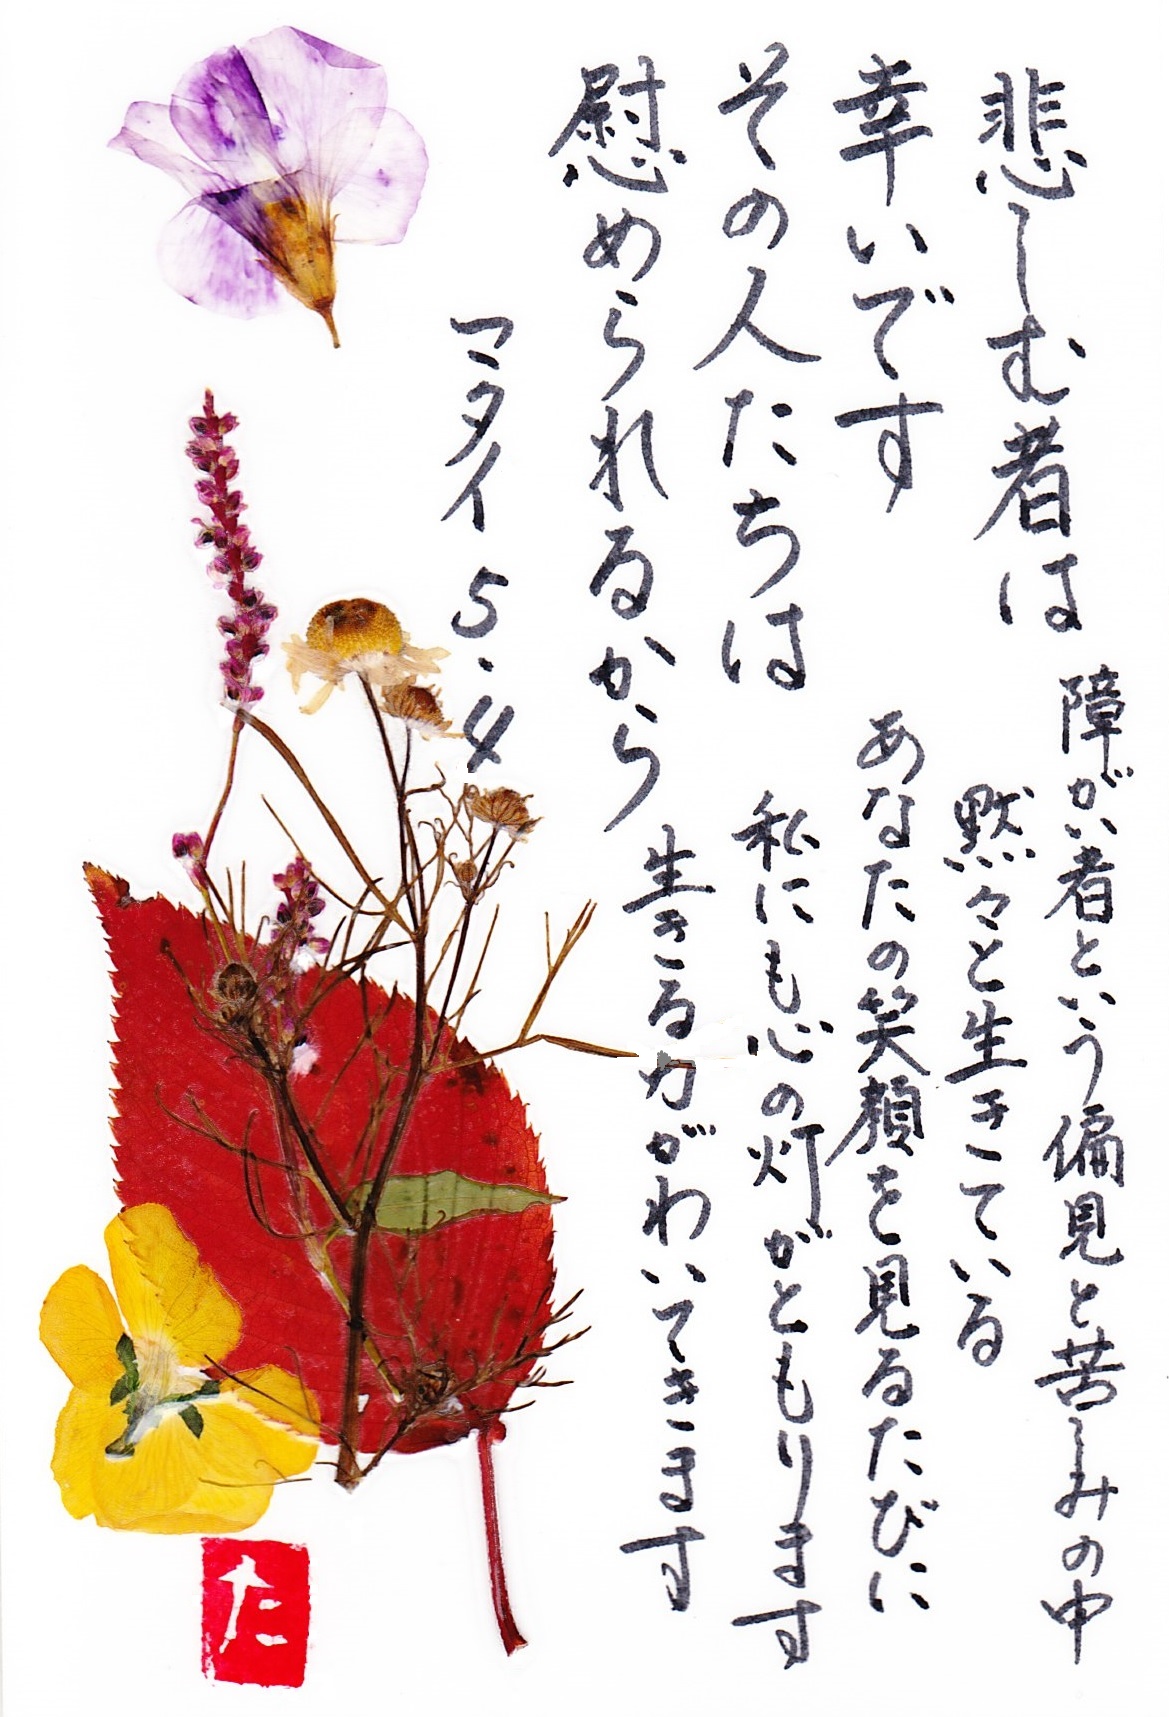 悲しむ者は
幸いです
その人たちは
慰められるから
マタイ5.4
障がい者という偏見と苦しみの中
黙々と生きている
あなたの笑顔を見るたびに
私にも心の灯がともります
生きる力がわいてきます
た